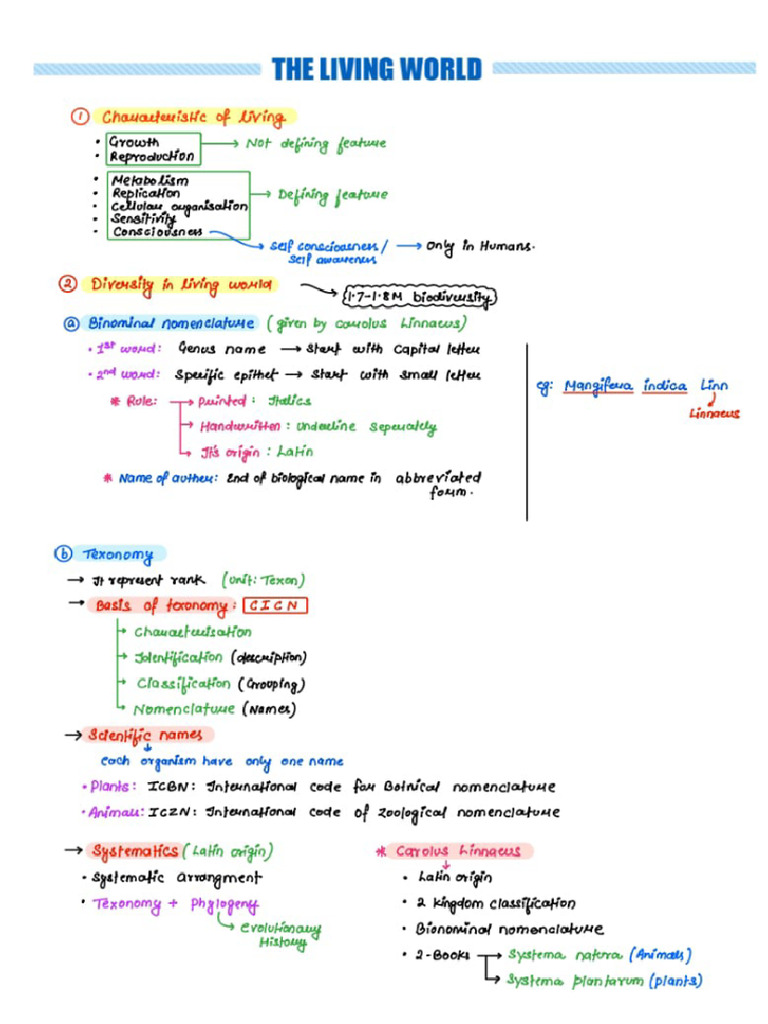 THE LIVING WORLD
① Characteristic of living
• Growth
• Reproduction
→ Not defining feature
• Metabolism
• Replication
• Cellular organisation
• Sensitivity
• Consciousness
→ Defining feature
→ Self consciousness/ → Only in Humans.
Self awareness
② Diversity in living world → 1.7-1.8M biodiversity
ⓐ Binominal nomenclature (given by carolus linnaeus)
• 1st word: Genus name → start with capital letter
• 2nd word: Specific epithet → start with small letter
* Rule: → printed: Italics
→ Handwritten: underline seperately
→ It's origin: Latin
* Name of author: End of biological name in abbreviated
form.
eg: Mangifera indica Linn
Linnaeus
ⓑ Texonomy
→ It represent rank (unit: Texon)
→ Basis of taxonomy: CICN
→ Characterisation
→ Identification (description)
→ Classification (Grouping)
→ Nomenclature (Names)
→ Scientific names
each organism have only one name
• Plants: ICBN: International code for Botnical nomenclature
• Animals: ICZN: International code of zoological nomenclature
→ Systematics (Latin origin)
• Systematic arrangment
• Texonomy + Phylogeny
→ Evolutionary
History
* Carolus Linnaeus
• Latin origin
• 2 kingdom classification
• Bionominal nomenclature
• 2-Books → Systema natera (Animals)
→ Systema plantarum (plants)